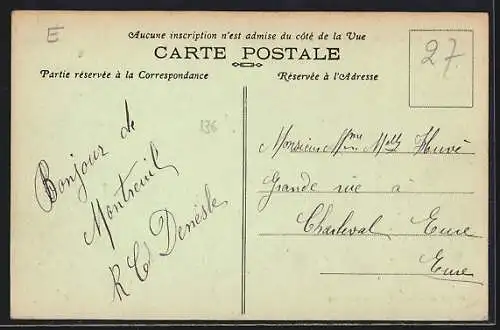 E
Aucune inscription n'est admise du côté de la Vue
CARTE POSTALE
Partie réservée à la Correspondance
Réservée à l'Adresse
27
136
Bonjour de
Montreuil
R C Denesle
Monsieur Mme Melle Huvé
Grande rue à
Charleval Eure
Eure